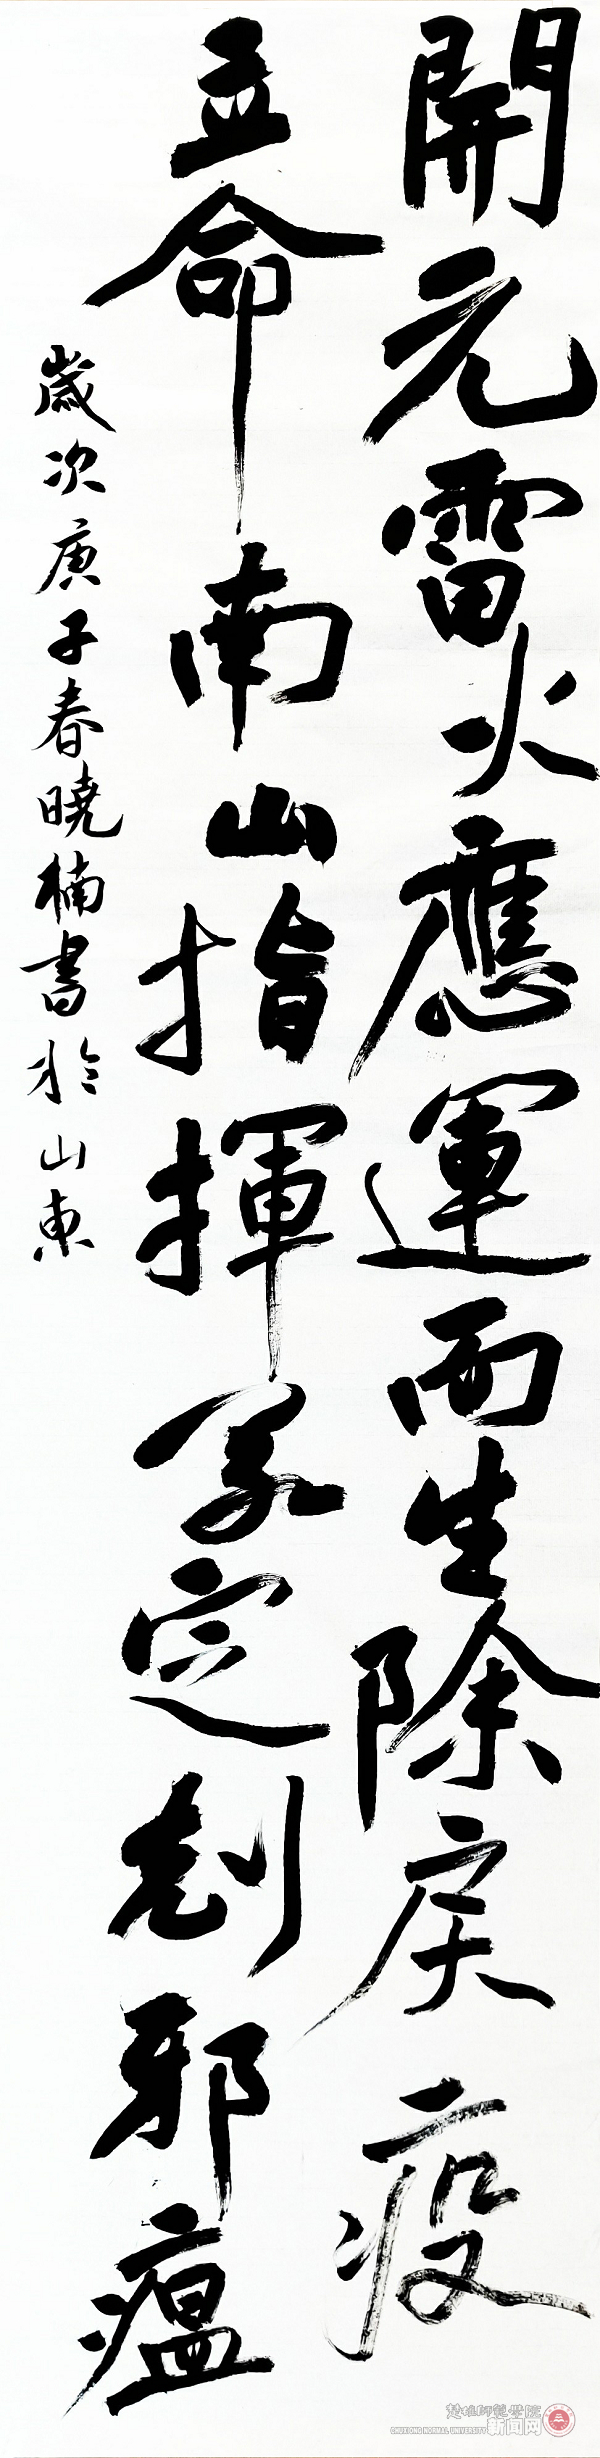 開元雷火應運而生除戾疫
立命南山指揮若定剋邪瘟
歲次庚子春曉楠書於山東
楚雄師範學院
CHUXIONG NORMAL UNIVERSITY 新闻网